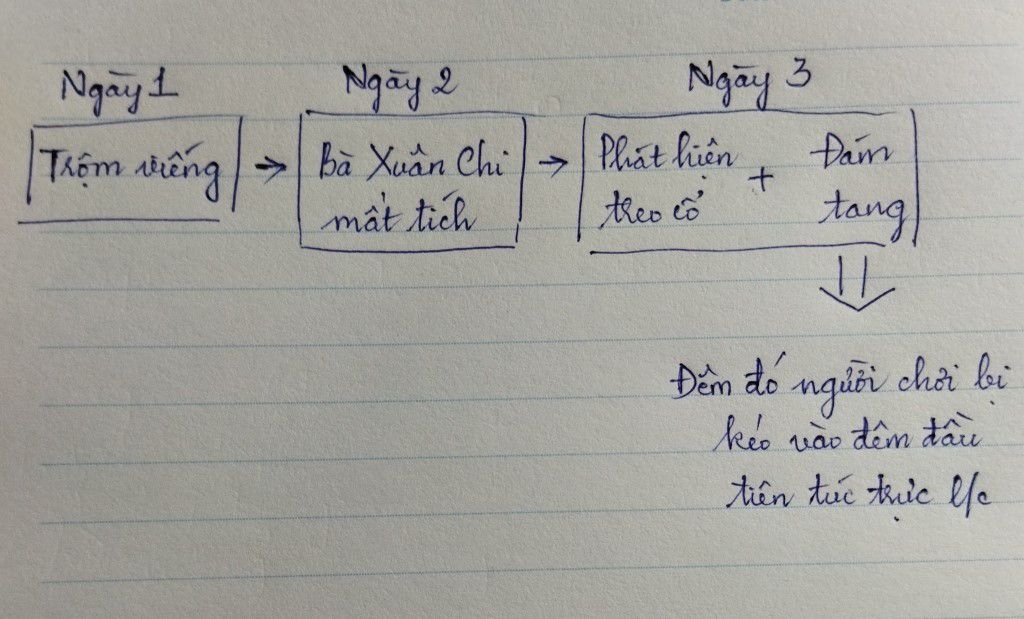 Ngày 1
Ngày 2
Ngày 3
Trộm viếng
Bà Xuân Chi
mất tích
Phát hiện
treo cổ
+
Đám
tang
Đêm đó người chơi bị
kéo vào đêm đầu
tiên tức trực l/c